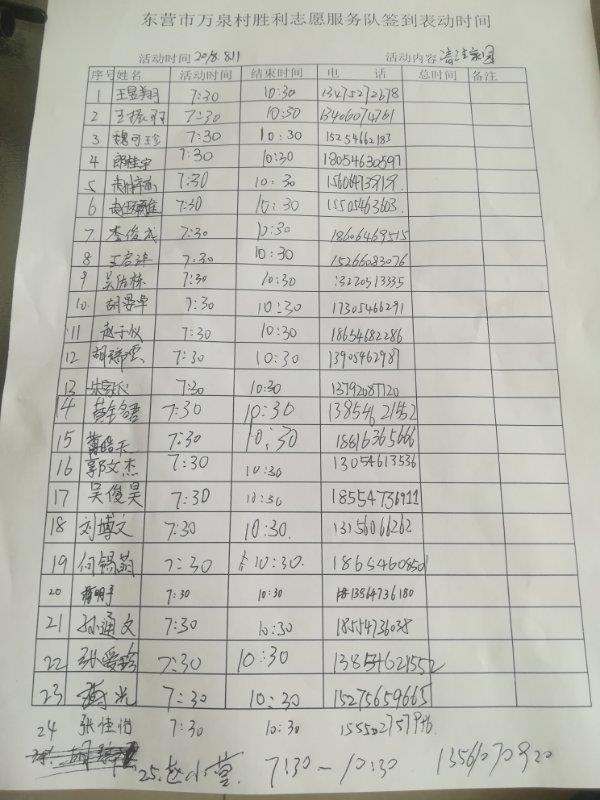 东营市万泉村胜利志愿服务队签到表动时间
活动时间 2018.8.11 活动内容
序号 姓名 活动时间 结束时间 电 话 总时间 备注
1 王昱翔 7:30 10:30
2 7:30 10:30 13406074761
3 魏可珍 7:30 10:30 15254662183
4 郎桂宇 7:30 10:30 18054630597
5 7:30 10:30
6 7:30 10:30 15505463603.
7 李俊成 7:30 10:30 18606469515
8 7:30 10:30 15266083076
9 7:30 10:30 13220513335
10. 胡晏卓 7:30 10:30 17305466291
11 赵子仪 7:30 10:30 18654682286
12 胡 7:30 10:30 13905462987
13 7:30 10:30 13792087720
14 7:30 10:30 13854621552
15 7:30 10:30 18816365666
16 郭文杰 7:30 10:30 13054613536
17 吴俊昊 7:30 10:30 18554736911
18 刘博文 7:30 10:30. 13156066262
19 何锡菡 7:30 10:30. 18654608501
20 7:30 10:30 13864736180
21 孙通文 7:30 10:30 18554736038
22 张爱珍 7:30 10:30 13854621552
23 7:30 10:30 15275659665
24 张佳怡 7:30 10:30
25.赵小萱. 7:30-10:30 13561070920